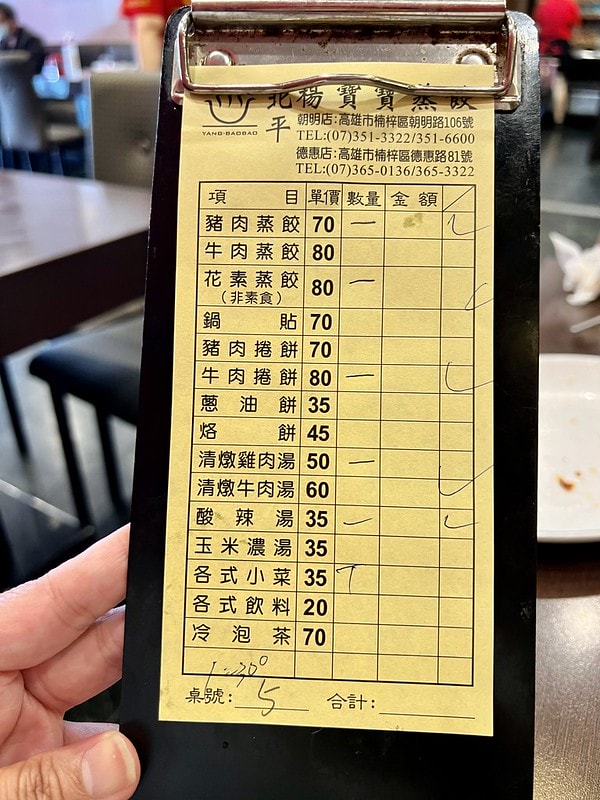 北楊寶寶蒸餃
平
YANG-BAOBAO
朝明店:高雄市楠梓區朝明路106號
TEL:(07)351-3322/351-6600
德惠店:高雄市楠梓區德惠路81號
TEL:(07)365-0136/365-3322
項目 單價 數量 金額
豬肉蒸餃 70 一
牛肉蒸餃 80
花素蒸餃 80 一
(非素食)
鍋貼 70
豬肉捲餅 70
牛肉捲餅 80 一
蔥油餅 35
烙餅 45
清燉雞肉湯 50 一
清燉牛肉湯 60
酸辣湯 35 一
玉米濃湯 35
各式小菜 35
各式飲料 20
冷泡茶 70
桌號: 5 合計: